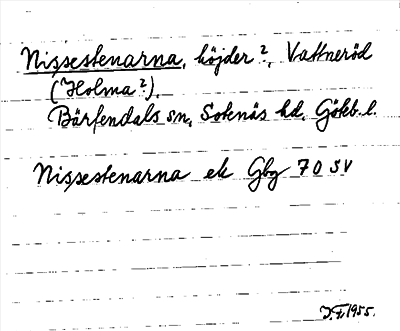 Nissestenarna, höjder?, Vattneröd
(Holma?),
Bärfendals sn, Sotenäs hd, Götb. l.
Nissestenarna ek Gbg 70 SV
1955.